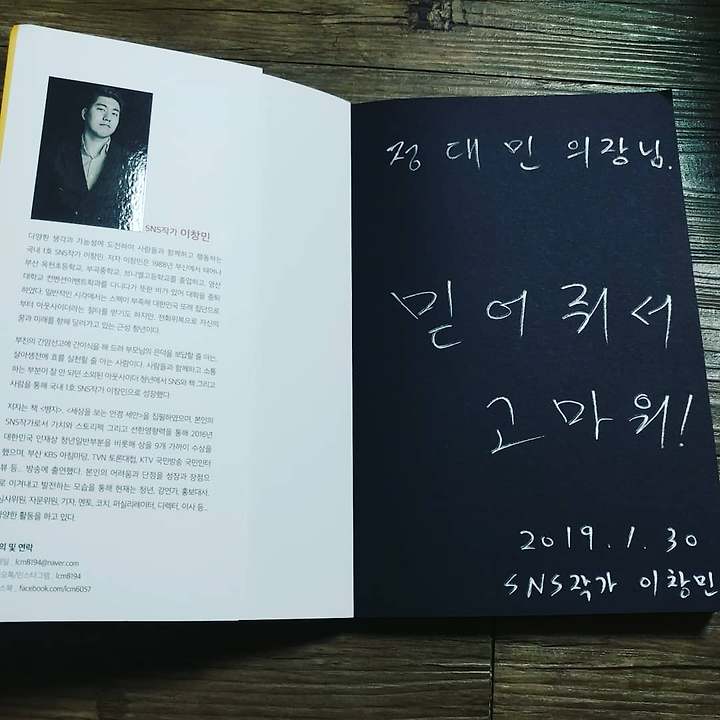 SNS작가 이창민
다양한 생각과 가능성에 도전하여 사람들과 함께하고 행동하는
국내 1호 SNS작가 이창민. 저자 이창민은 1988년 부산에서 태어나
부산 옥천초등학교, 부곡중학교, 브니엘고등학교를 졸업하고, 영산
대학교 컨벤션이벤트학과를 다니다가 뜻한 바가 있어 대학을 중퇴
하였다. 일반적인 시각에서는 스펙이 부족해 대한민국 또래 집단으로
부터 아웃사이더라는 질타를 받기도 하지만, 전화위복으로 자신의
꿈과 미래를 향해 달려가고 있는 근성 청년이다.
부친의 간암선고에 간이식을 해 드려 부모님의 은덕을 보답할 줄 아는,
살아생전에 효를 실천할 줄 아는 사람이다. 사람들과 함께하고 소통
하는 부분이 잘 안 되던 소외된 아웃사이더 청년에서 SNS와 책 그리고
사람을 통해 국내 1호 SNS작가 이창민으로 성장했다.
저자는 책 <병자>, <세상을 보는 안경 세안>을 집필하였으며, 본인의
SNS작가로서 가치와 스토리텍 그리고 선한영향력을 통해 2016년
대한민국 인재상 청년일반부분을 비롯해 상을 9개 가까이 수상을
했으며, 부산 KBS 아침마당, TVN 토론대첩, KTV 국민방송 국민인터
뷰 등... 방송에 출연했다. 본인의 어려움과 단점을 성장과 장점으
로 이겨내고 발전하는 모습을 통해 현재는 청년, 강연가, 홍보대사,
심사위원, 자문위원, 기자, 멘토, 코치, 퍼실리레이터, 디렉터, 이사 등...
다양한 활동을 하고 있다.
의 및 연락
메일 . lcm8194@naver.com
오톡/인스타그램 . lcm8194
스북 . facebook.com/lcm6057
정대민 의장님.
믿어줘서
고마워!
2019. 1. 30
SNS작가 이창민